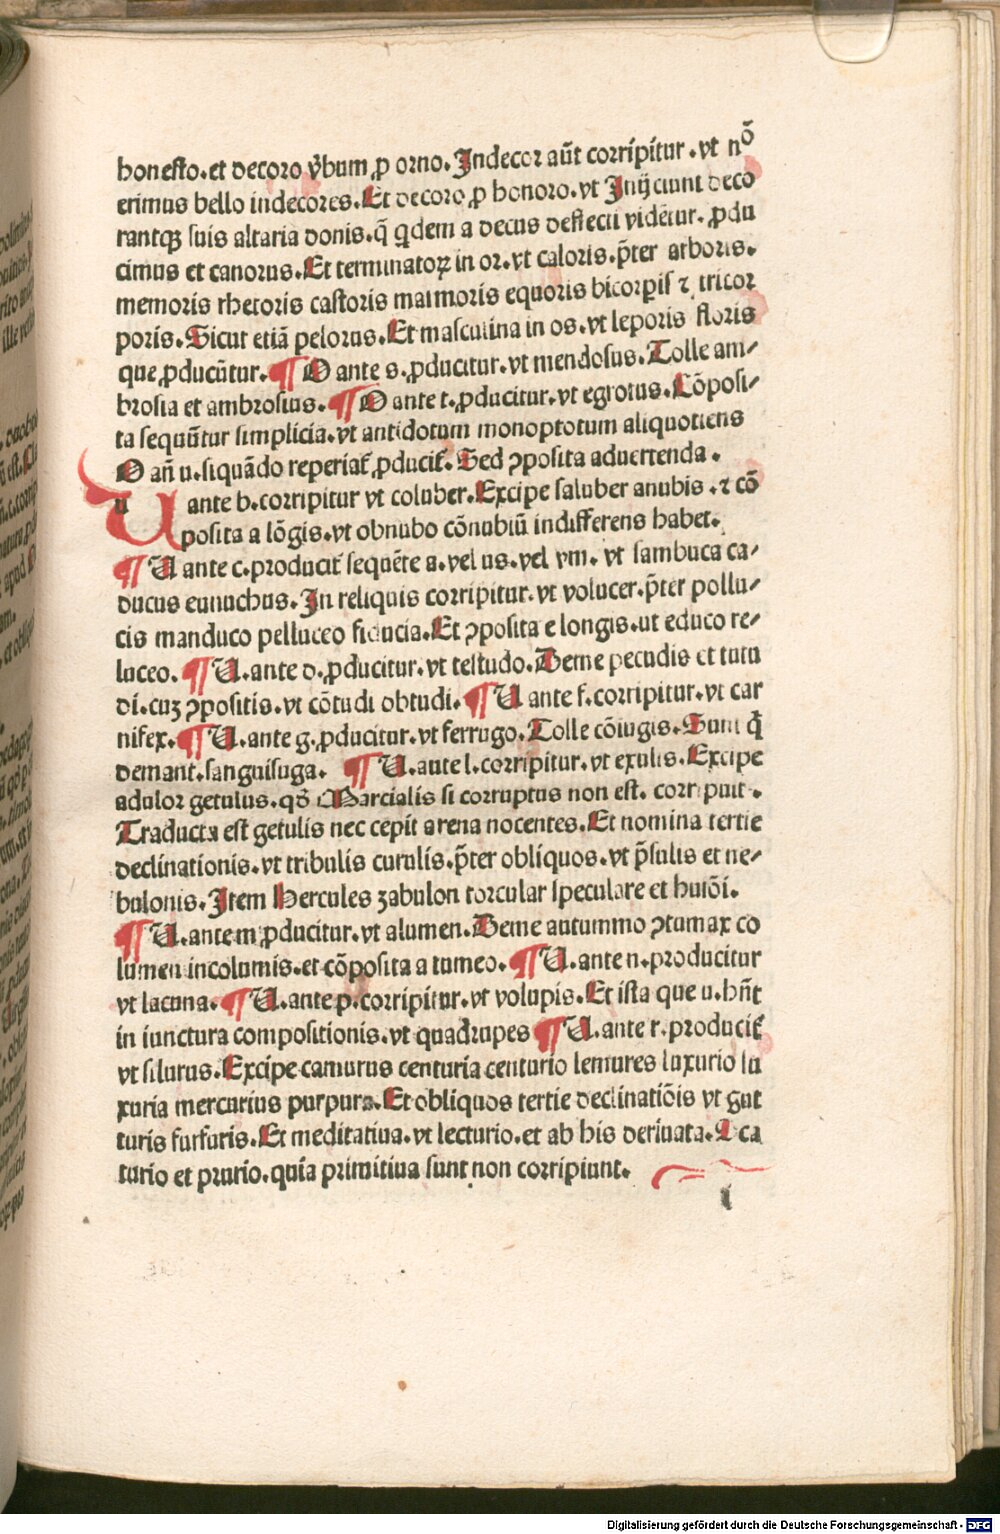 honesto.et decoro v̄bum ꝓ orno.Indecor aūt corripitur.vt nō
erimus bello indecores.Et decoro ꝓ honoro.vt Inijciunt deco
rantqꝫ suis altaria donis.q̄ q̇dem a decus deflecti vidētur.ꝓdu
cimus et canorus.Et terminatoꝝ in or.vt caloris.p̄ter arboris.
memoris rhetoris castoris marmoris equoris bicorꝑis ⁊ tricor
poris.Sicut etiā pelorus.Et masculina in os.vt leporis floris
que ꝓducūtur.¶ O ante s.ꝓducitur.vt mendosus.Tolle am⸗
brosia et ambrosius.¶ O ante t.ꝓducitur.vt egrotus.Cōposi⸗
ta sequūtur simplicia.vt antidotum monoptotum aliquotiens
O añ u.siquādo reperiat̄ ꝓducit̄.Sed ꝯposita aduertenda.
U ante b.corripitur vt coluber.Excipe saluber anubis.⁊ cō
posita a lōgis.vt obnubo cōnubiū indifferens habet.
¶ U ante c.producit̄ sequēte a.vel us.vel vm.vt sambuca ca⸗
ducus eunuchus.In reliquis corripitur.vt volucer.p̄ter pollu⸗
cis manduco pelluceo fiducia.Et ꝯposita e longis.ut educo re⸗
luceo.¶ U.ante d.ꝓducitur.vt testudo.Deme pecudis et tutu
di.cuꝫ ꝯpositis.vt cōtudi obtudi.¶ U ante f.corripitur.vt car
nifex.¶ U.ante g.ꝓducitur.vt ferrugo.Tolle cōiugis.Sunt q̄
demant.sanguisuga.¶ U.ante l.corripitur.vt exulis.Excipe
adulor getulus.qđ Marcialis si corruptus non est.corripuit.
Traducta est getulis nec cepit arena nocentes.Et nomina tertie
declinationis.vt tribulis curulis.p̄ter obliquos.vt p̄sulis et ne⸗
bulonis.Item Hercules zabulon torcular speculare et huiōi.
¶ U.ante m ꝓducitur.vt alumen.Deme autummo ꝯtumax co
lumen incolumis.et cōposita a tumeo.¶ U.ante n.producitur
vt lacuna.¶ U.ante p.corripitur.vt volupis.Et ista que u.hn̄t
in iunctura compositionis.vt quadrupes ¶ U.ante r.producit̄
vt silurus.Excipe camurus centuria centurio lemures luxurio lu
xuria mercurius purpura.Et obliquos tertie declinatiōis vt gut
turis furfuris.Et meditatiua.vt lecturio.et ab his deriuata.Sca
turio et prurio.quia primitiua sunt non corripiunt.
i
Digitalisierung gefördert durch die Deutsche Forschungsgemeinschaft - DFG